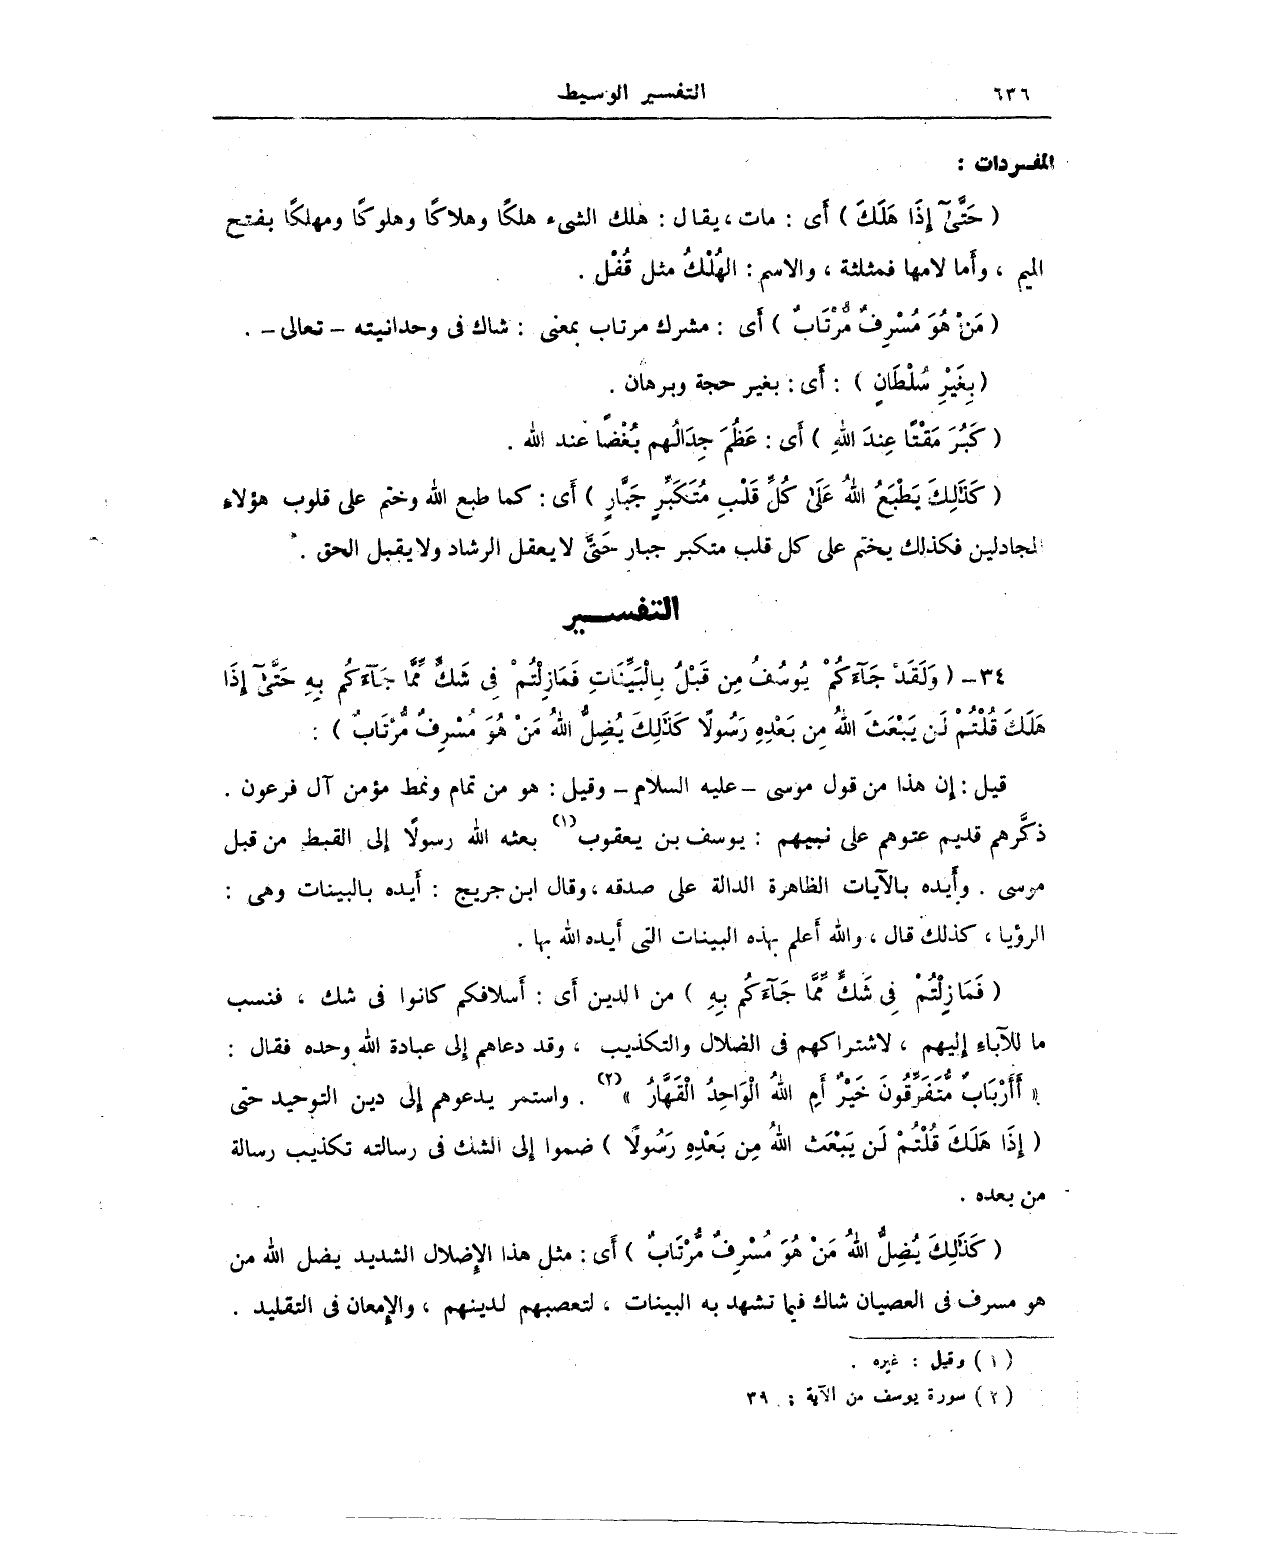 ٦٣٦ التفسير الوسيط
المفردات :
( حَتَّىٰٓ إِذَا هَلَكَ ) أَى : مات ، يقال : هلك الشىء هلكًا وهلاكًا وهلوكًا ومهلكًا بفتح
الميم ، وأَما لامها فمثلثة ، والاسم : الهُلْكُ مثل قُفْل .
( مَنْ هُوَ مُسْرِفٌ مُّرْتَابٌ ) أَى : مشرك مرتاب بمعنى : شاك فى وحدانيته – تعالى – .
( بِغَيْرِ سُلْطَانٍ ) : أَى : بغير حجة وبرهان .
( كَبُرَ مَقْتًا عِندَ اللهِ ) أَى : عَظُمَ جِدَالُهم بُغْضًا عند الله .
( كَذَٰلِكَ يَطْبَعُ اللهُ عَلَىٰ كُلِّ قَلْبِ مُتَكَبِّرٍ جَبَّارٍ ) أَى : كما طبع الله وختم على قلوب هؤلاء
المجادلين فكذلك يختم على كل قلب متكبر جبار حَتَّىٰ لا يعقل الرشاد ولا يقبل الحق .
التفسير
٣٤ – ( وَلَقَدْ جَآءَكُمْ يُوسُفُ مِن قَبْلُ بِالْبَيِّنَاتِ فَمَازِلْتُمْ فِى شَكٍّ مِّمَّا جَآءَكُم بِهِ حَتَّىٰٓ إِذَا
هَلَكَ قُلْتُمْ لَن يَبْعَثَ اللهُ مِن بَعْدِهِ رَسُولًا كَذَٰلِكَ يُضِلُّ اللهُ مَنْ هُوَ مُسْرِفٌ مُّرْتَابٌ ) :
قيل : إن هذا من قول موسى – عليه السلام – وقيل : هو من تمام ونمط مؤمن آل فرعون .
ذكَّرهم قديم عتوهم على نبيهم : يوسف بن يعقوب (١) بعثه الله رسولًا إلى القبط من قبل
موسى . وأَيده بالآيات الظاهرة الدالة على صدقه ، وقال ابن جريج : أَيده بالبينات وهى :
الرؤيا ، كذلك قال ، والله أعلم بهذه البينات التى أَيده الله بها .
( فَمَازِلْتُمْ فِى شَكٍّ مِّمَّا جَآءَكُم بِهِ ) من الدين أَى : أَسلافكم كانوا فى شك ، فنسب
ما للآباءِ إليهم ، لاشتراكهم فى الضلال والتكذيب ، وقد دعاهم إلى عبادة الله وحده فقال :
« أَأَرْبَابٌ مُّتَفَرِّقُونَ خَيْرٌ أَمِ اللهُ الْوَاحِدُ الْقَهَّارُ » (٢) . واستمر يدعوهم إلى دين التوحيد حتى
( إِذَا هَلَكَ قُلْتُمْ لَن يَبْعَثَ اللهُ مِن بَعْدِهِ رَسُولًا ) ضموا إلى الشك فى رسالته تكذيب رسالة
من بعده .
( كَذَٰلِكَ يُضِلُّ اللهُ مَنْ هُوَ مُسْرِفٌ مُّرْتَابٌ ) أَى : مثل هذا الإِضلال الشديد يضل الله من
هو مسرف فى العصيان شاك فيما تشهد به البينات ، لتعصبهم لدينهم ، والإِمعان فى التقليد .
( ١ ) وقيل : غيره .
( ٢ ) سورة يوسف من الآية : ٣٩